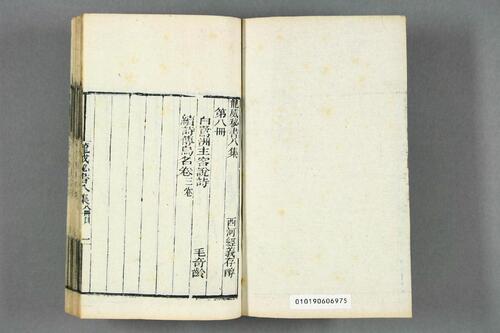 龍威秘書八集
西河經義存醇
第八冊
白鷺洲主客說詩
續詩傳鳥名卷三卷
毛奇齡
龍威秘書八集
010190606975